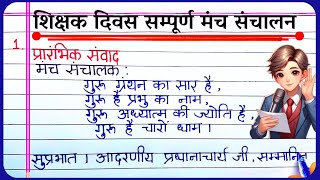 शिक्षक दिवस सम्पूर्ण मंच संचालन
1. प्रारंभिक संवाद
मंच संचालक :
गुरू ग्रंथन का सार है,
गुरू है प्रभु का नाम,
गुरू अध्यात्म की ज्योति है,
गुरू है चारों धाम।
सुप्रभात। आदरणीय प्रधानाचार्य जी, सम्मानित